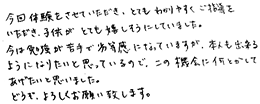 今回体験をさせていただき、とてもわかりやすくご指導を
いただき、子供がとても嬉しそうにしていました。
今は勉強が苦手で劣等感になっていますが、本人も出来る
ようになりたいと思っているので、この機会に何とかして
あげたいと思いました。
どうぞ、よろしくお願い致します。